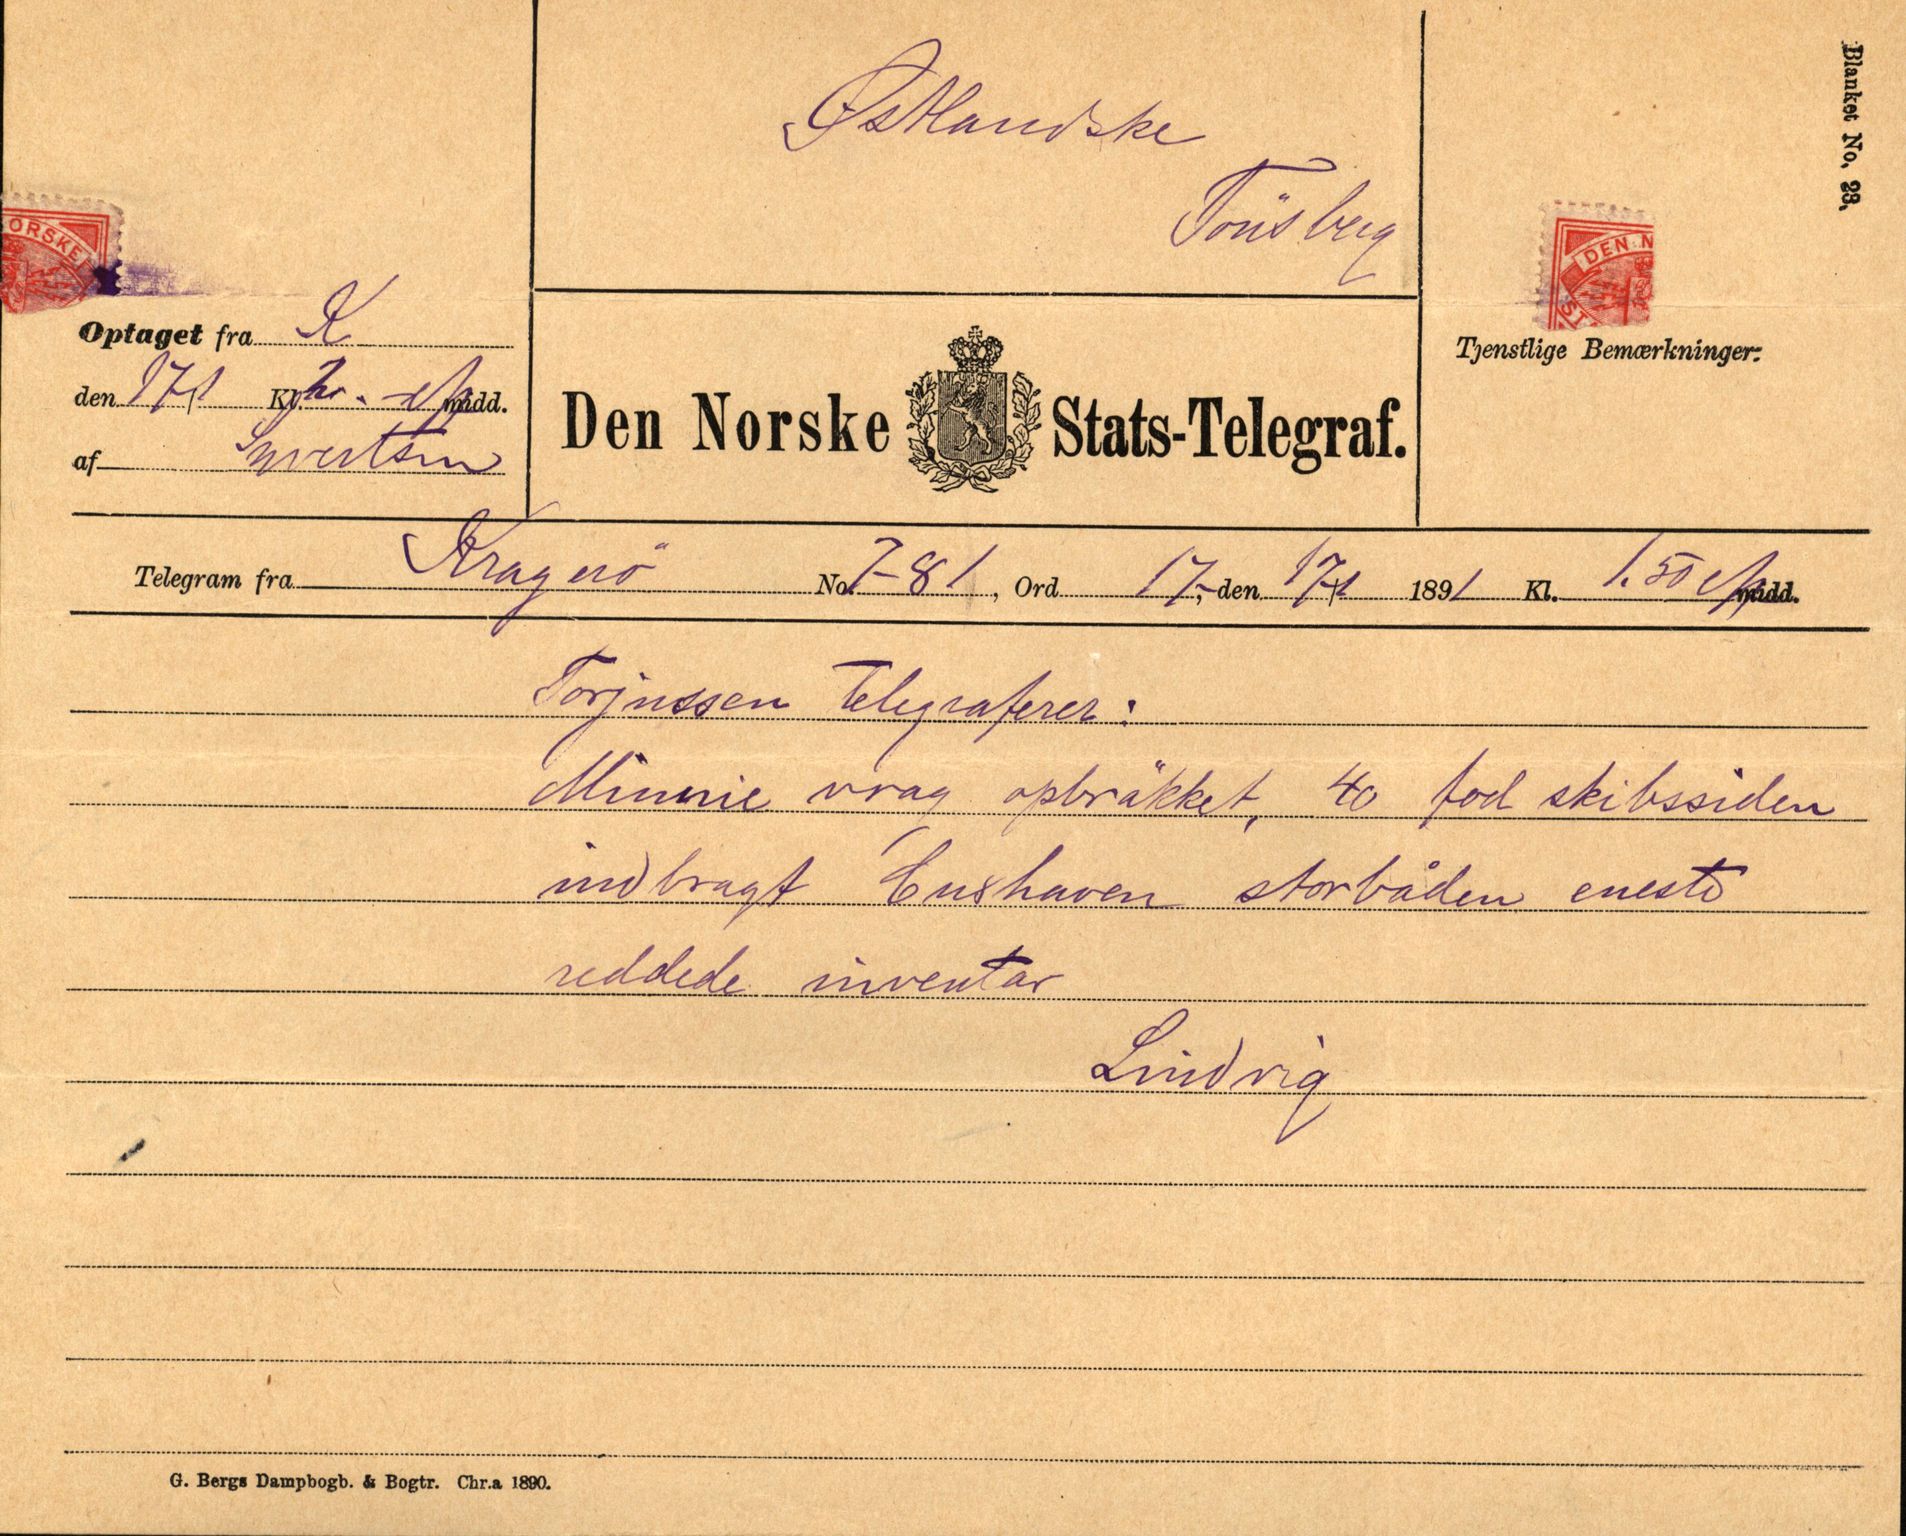 Blanket No. 23.
Østlandske
Tönsberg
ORSKE
DEN N
ST
Optaget fra K
den 17/1 Kl. 2 e/midd.
af Syvertsen
Den Norske Stats-Telegraf.
Tjenstlige Bemærkninger:
Telegram fra Kragerö No. 781, Ord 17, den 17/1 1891 Kl. 1.50 e/midd.
Torjussen telegraferer:
Minnie vrag opbräkket, 40 fod skibssiden
indbragt Cuxhaven storbåden eneste
reddede inventar
Lindvig
G. Bergs Dampbogb. & Bogtr. Chr.a 1890.